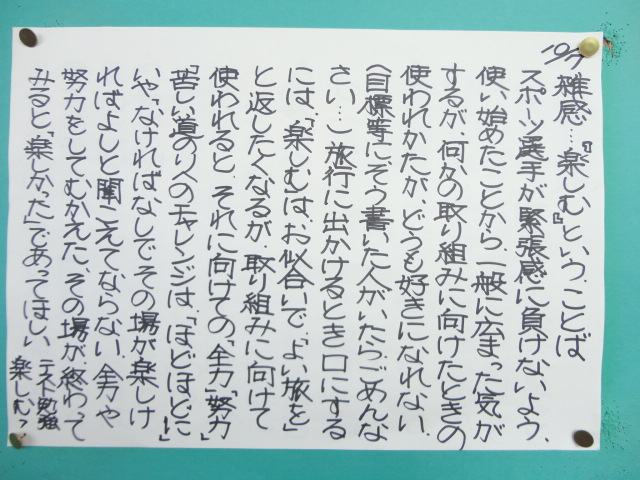 10/7
雑感…『楽しむ』ということば
スポーツ選手が緊張感に負けないよう、
使い始めたことから、一般に広まった気が
するが、何かの取り組みに向けたときの
使われかたが、どうも好きになれない。
(目標等にそう書いた人がいたら、ごめんな
さい…) 旅行に出かけるとき口にする
には、「楽しむ」は、お似合いで、「よい旅を」
と返したくなるが、取り組みに向けて
使われると、それに向けての「全力」「努力」
「苦しい道のり」へのチャレンジは、「ほどほどに!」
いや、「なければなしで、その場が楽しけ
ればよし」と聞こえてならない。全力や
努力をしてむかえた、その場が、終わって
みると「楽しかった」であってほしい
テスト勉強
楽しむ?